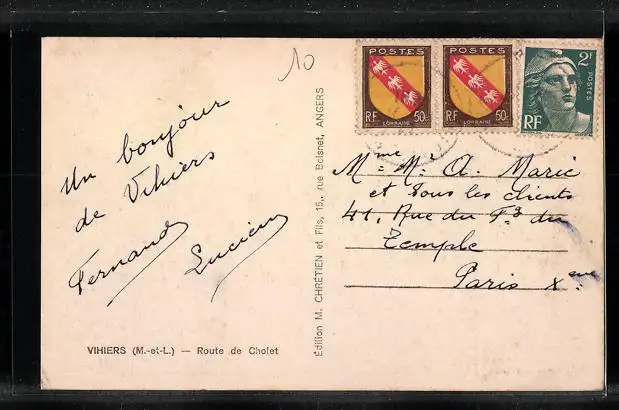 10
POSTES
RF LORRAINE 50c
POSTES
RF LORRAINE 50c
2F
POSTES
RF
Un bonjour
de Vihiers
Fernand
Lucien
VIHIERS (M.-et-L.) — Route de Cholet
Édition M. CHRÉTIEN et Fils, 15, rue Boisnet, ANGERS
Mme Mr A. Marie
et tous les clients
41, Rue du Fg du
Temple
Paris Xeme